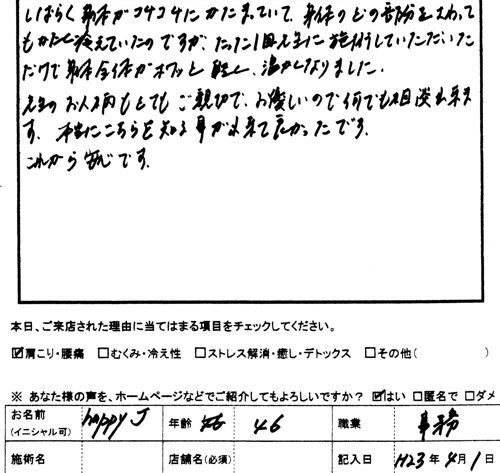 しばらく身体がコチコチにかたまっていて、身体のどの部分をさわって
もかたく冷えていたのですが、たった1回先生に施術していただいた
だけで身体全体がホワッと軽く、温かくなりました。
先生のお人柄もとてもご親切で、お優しいので何でも相談出来ま
す。本当にこちらを知る事が出来て良かったです。
これから安心です。
本日、ご来店された理由に当てはまる項目をチェックしてください。
☑肩こり・腰痛 □むくみ・冷え性 □ストレス解消・癒し・デトックス □その他( )
※ あなた様の声を、ホームページなどでご紹介してもよろしいですか？ ☑はい □匿名で □ダメ
お名前 (イニシャル可) happy J 年齢 46 職業 事務
施術名 店舗名(必須) 記入日 H23年4月1日